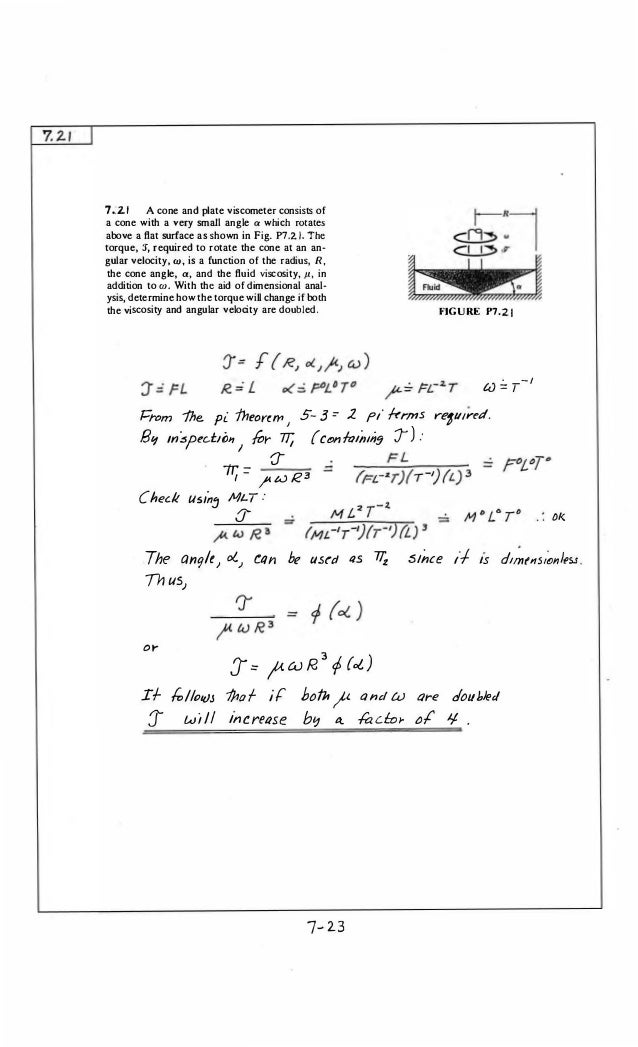 7.21
7.21 A cone and plate viscometer consists of
a cone with a very small angle α which rotates
above a flat surface as shown in Fig. P7.21. The
torque, 𝒯, required to rotate the cone at an an-
gular velocity, ω, is a function of the radius, R,
the cone angle, α, and the fluid viscosity, μ, in
addition to ω. With the aid of dimensional anal-
ysis, determine how the torque will change if both
the viscosity and angular velocity are doubled.
R
ω
𝒯
Fluid
α
FIGURE P7.21
𝒯 = f (R, α, μ, ω)
𝒯 ≐ FL R ≐ L α ≐ F⁰L⁰T⁰ μ ≐ FL⁻²T ω ≐ T⁻¹
From the pi theorem, 5-3 = 2 pi terms required.
By inspection, for π₁ (containing 𝒯):
π₁ = 𝒯 / μωR³ ≐ FL / (FL⁻²T)(T⁻¹)(L)³ ≐ F⁰L⁰T⁰
Check using MLT:
𝒯 / μωR³ ≐ ML²T⁻² / (ML⁻¹T⁻¹)(T⁻¹)(L)³ ≐ M⁰L⁰T⁰ ∴ OK
The angle, α, can be used as π₂ since it is dimensionless.
Thus,
𝒯 / μωR³ = ϕ (α)
or
𝒯 = μωR³ ϕ(α)
It follows that if both μ and ω are doubled
𝒯 will increase by a factor of 4.
7-23